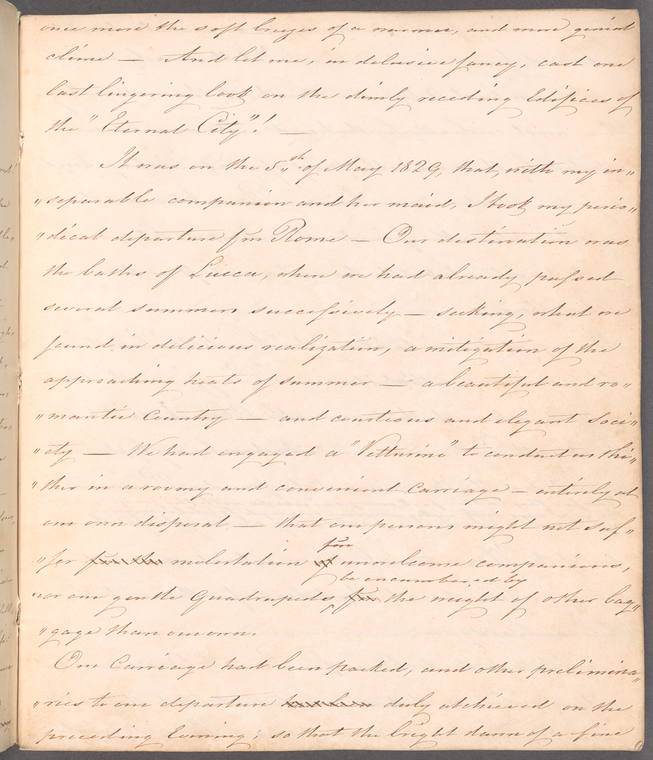 once more the soft breezes of a warmer, and more genial
clime — And let me, in delusive fancy, cast one
last lingering look on the dimly receding Edifices of
the "Eternal City"! —
It was on the 5th of May 1829, that, with my in„
„separable companion and her maid, I took my perio„
„dical departure fm Rome — Our destination was
the baths of Lucca, where we had already passed
several summers successively — seeking, what we
found in delicious realization, a mitigation of the
approaching heats of summer — a beautiful and ro„
„mantic Country — and courteous and elegant Soci„
„ety — We had engaged a "Vetturino" to conduct us thi„
„ther in a roomy and convenient Carriage — entirely at
our own disposal — that our persons might not suf„
„fer molestation fm unwelcome companions,
or our gentle Quadrupeds be encumbered by the weight of other bag„
„gage than our own.
Our Carriage had been packed, and other prelimina„
„ries to our departure duly atchieved on the
preceding Evening; so that the bright dawn of a fine